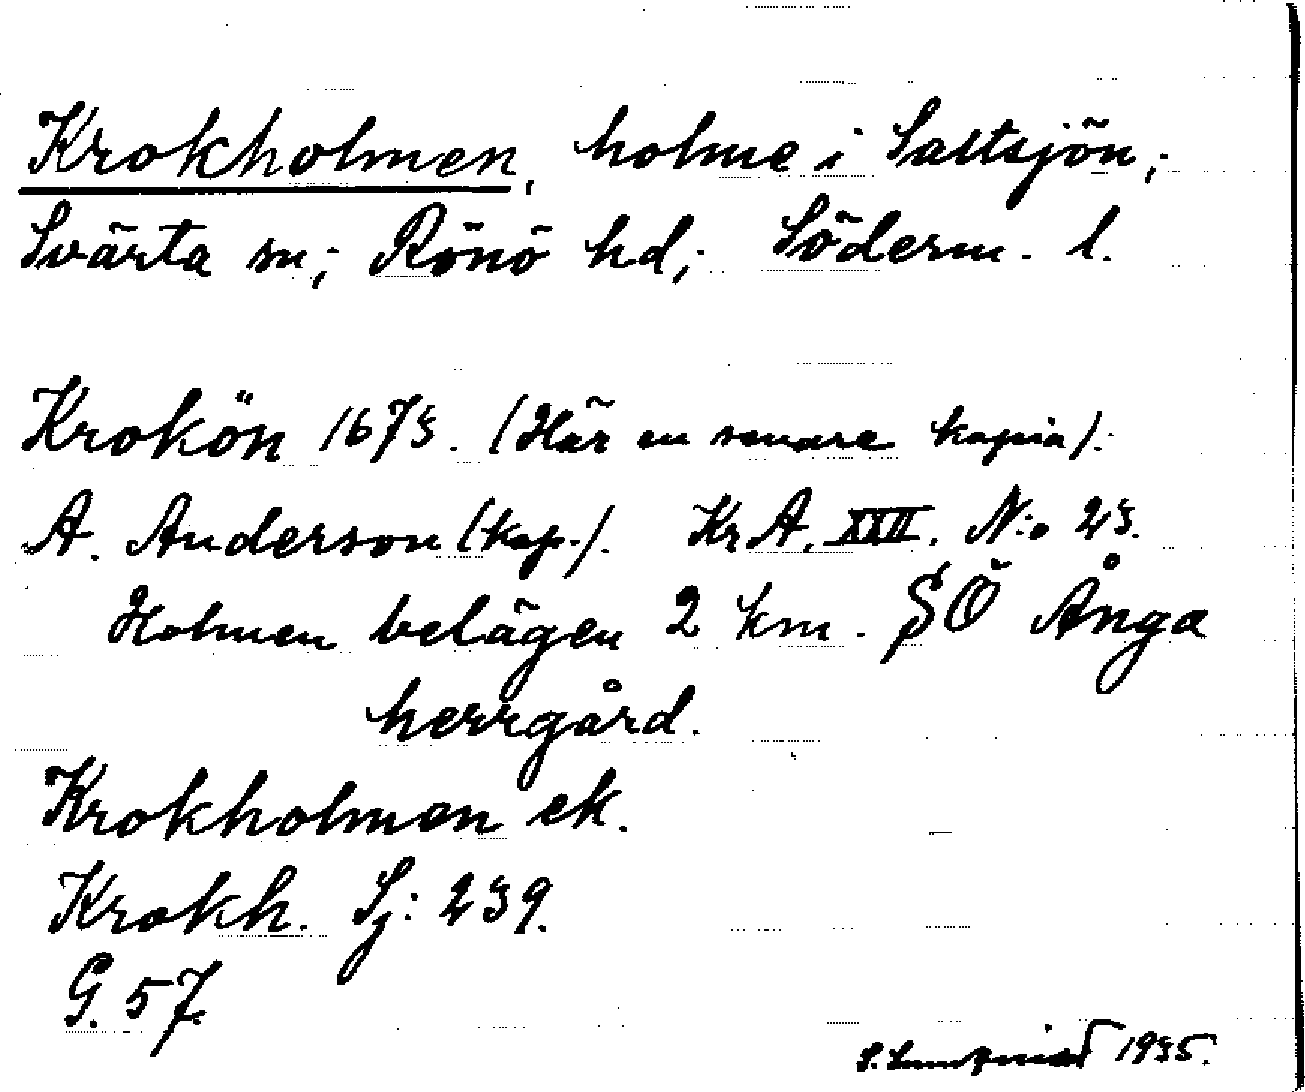 Krokholmen, holme i Saltsjön;
Svärta sn; Rönö hd; Söderm. l.
Krokön 1673. (Här en senare kopia).
A. Anderson (kop.). Kr A. XXII. N:o 23.
Holmen belägen 2 km. SÖ Ånga
herrgård.
Krokholmen ek.
Krokh. Sj: 239.
G. 57.
S. Lundqvist 1935.